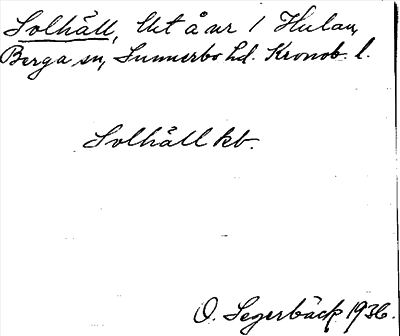 Solhäll, lht å nr 1 Hulan,
Berga sn, Sunnerbo hd. Kronob. l.
Solhäll kb.
O. Segerbäck 1936.